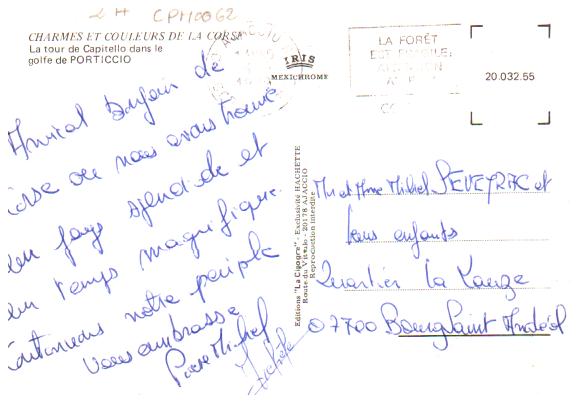 2H CPM10062
CHARMES ET COULEURS DE LA CORSE
La tour de Capitello dans le
golfe de PORTICCIO
IRIS
MEXICHROME
LA FORÊT
EST FRAGILE
20.032.55
Amical bonjour de
Corse où nous avons trouvé
un pays splendide et
un temps magnifique.
Continuons notre périple
Vous embrasse
Pierre Michel
Michèle
Editions "La Cigogne" - Exclusivité HACHETTE
Route du Vittulo - 20178 AJACCIO
Reproduction interdite
Mr et Mme Michel SEVEYRAC et
leurs enfants
Quartier La Lauze
07700 Bourg Saint Andéol